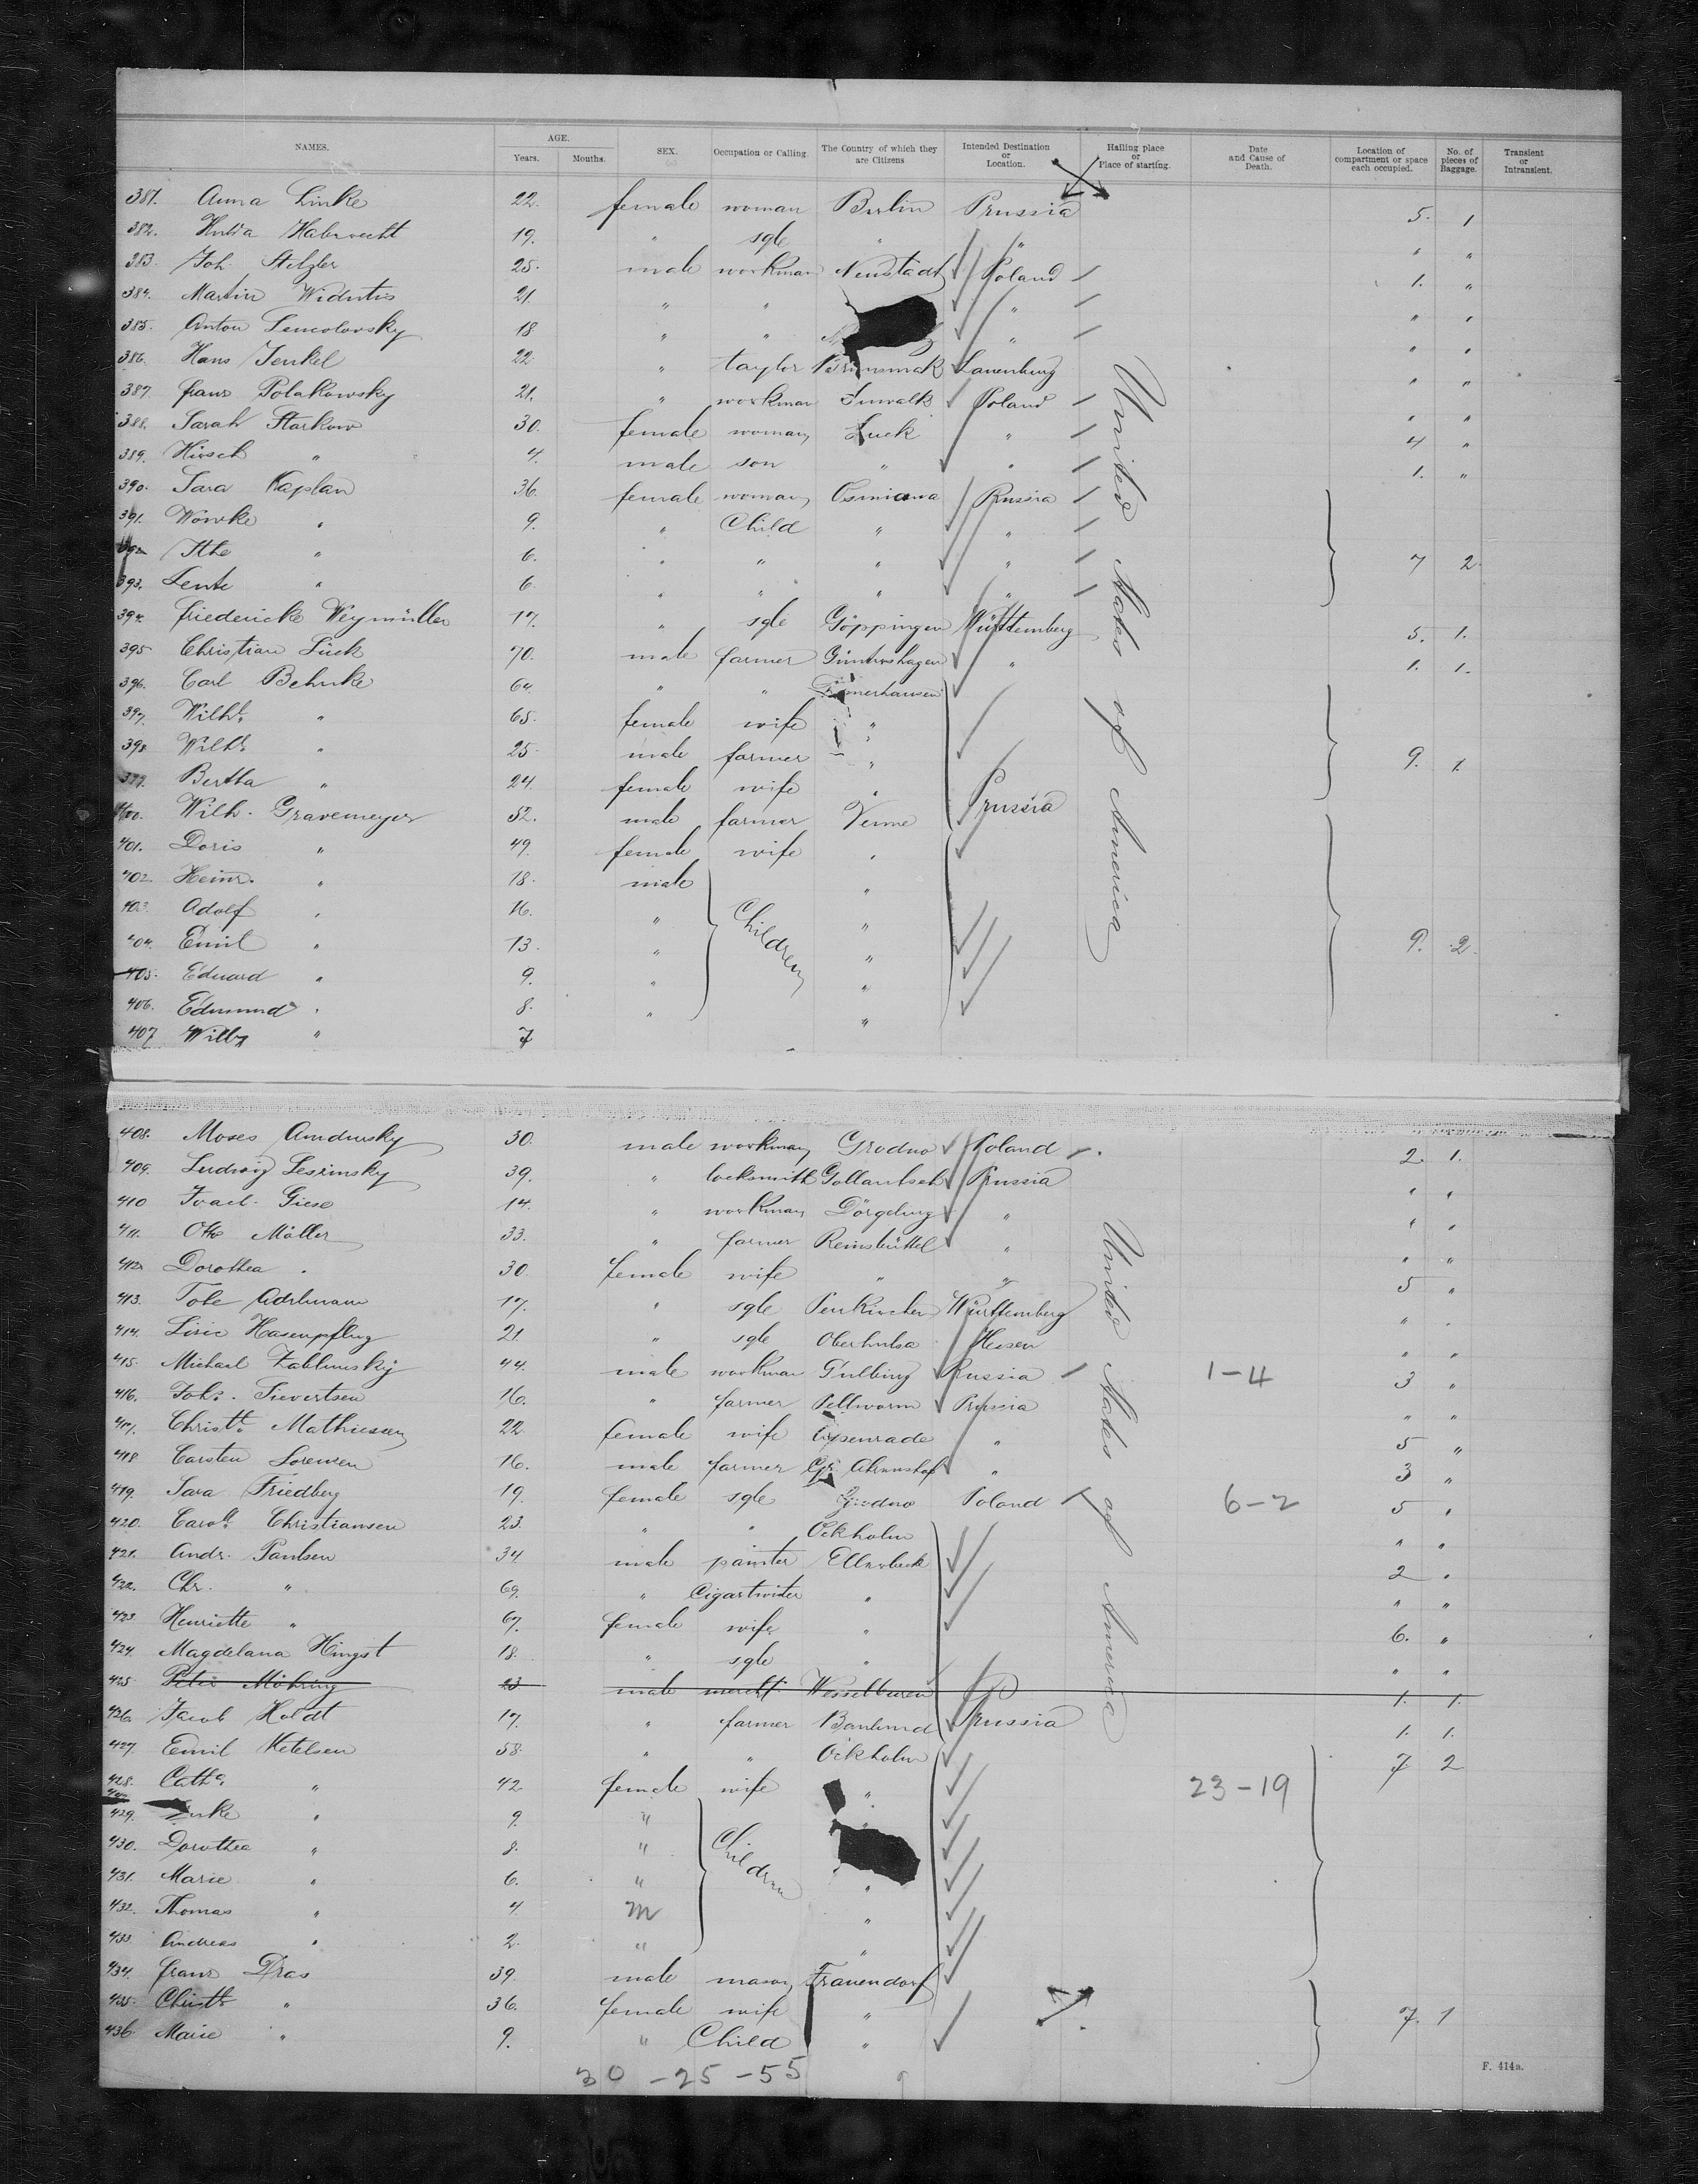 NAMES. AGE. Years. Months. SEX. Occupation or Calling. The Country of which they are Citizens Intended Destination or Location. Hailing place or Place of starting. Date and Cause of Death. Location of compartment or space each occupied. No. of pieces of Baggage. Transient or Intransient.
381. Anna Linke 22. female woman Berlin Prussia 5. 1
382. Habrecht 19. " sgle " " " "
383. Joh. Stelzler 25. male workman Neustadt Poland 1. "
384. Martin Widutis 21. " " " " "
385. Anton 18. " " " " "
386. Hans Jenkel 22. " taylor Lauenburg " "
387. franz Polakowsky 21. " workman Suwalk Poland " "
388. Sarah Starkow 30. female woman Luck " 4 "
389. Hirsch " 4. male son " " 1. "
390. Sara Kaplan 36. female woman Osmiana Russia
391. Wowke " 9. " Child " "
392. Itke " 6. " " " " 7 2.
393. " 6. " " " "
394. friedericke Weymüller 17. " sgle Göppingen Württemberg 5. 1.
395 Christian Lück 70. male farmer Güntershagen " 1. 1.
396. Carl Behnke 64. " "
397. Wilh. " 65. female wife "
398. Wilh. " 25. male farmer " 9. 1.
399. Bertha " 24. female wife " Prussia
400. Wilh. Gravemeyer 52. male farmer Venne
401. Doris " 49. female wife "
402. Heinr. " 18. male "
403. Adolf " 16. " Children "
404. Emil " 13. " " 9. 2.
405. Eduard " 9. " "
406. Edmund " 8. " "
407 Willy " 7
United States of America
408. Moses Amdursky 30. male workman Grodno Poland 2. 1.
409. Ludwig Leszinsky 39. " locksmith Gollantsch Prussia " "
410 Joach. Giese 14. " workman " " "
411. Otto Möller 33. " farmer Reinsbüttel " " "
412 Dorothea " 30 female wife " " 5 "
413. 17. " sgle Württemberg " "
414. Hasenpflug 21 " sgle Oberhulsa Hessen " "
415. Michael 44. male workman Russia 1-4 3 "
416. Joh. Sievertsen 16. " farmer Pellworm Prussia " "
417. Christ. Mathiesen 22 female wife Apenrade " 5 "
418 Carsten Lorensen 16. male farmer Gr. Ahrenshof " 3 "
419. Sara Friedberg 19. female sgle Grodno Poland 6-2 5 "
420. Carol. Christiansen 23. " " Ockholm " "
421. Andr. Paulsen 34 male painter Ellerbeck 2 "
422. Chr. " 69. " Cigartwister " " "
423. Henriette " 67. female wife " 6. "
424. Magdelana Hingst 18. " sgle " " "
425 Peter Möhring 23 male mercht Wesselburen P 1. 1.
426. Jacob Holdt 17. " farmer Baulund Prussia 1. 1.
427. Emil Ketelsen 58. " " Ockholm 7 2
428. Cath. " 42 female wife " 23-19
429. " 9. " "
430. Dorothea " 8. " Children
431. Marie " 6. " "
432. Thomas " 4 m "
433. Andreas " 2. " "
434. franz Dras 39. male mason Frauendorf
435. Christ. " 36. female wife " 7. 1
436. Marie " 9. " Child "
United States of America
30 - 25 - 55
F. 414a.